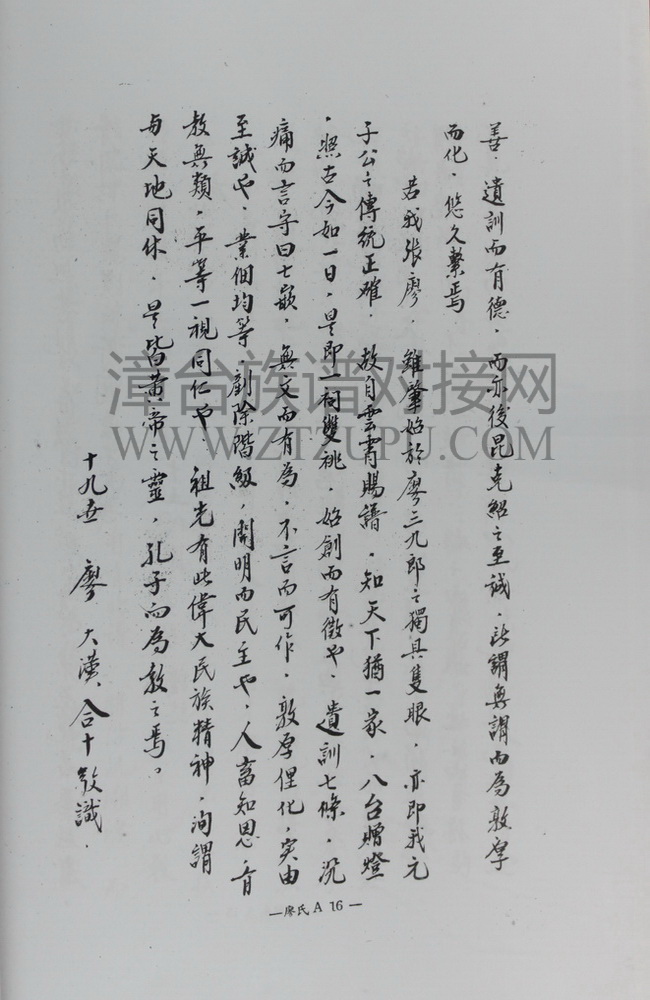 善．遺訓而有德．而亦後昆克紹之至誠．所謂無謂而為敦厚
而化．悠久繫焉
若我張廖．雖肇始於廖三九郎之獨具隻眼．亦即我元
子公之傳統正確．故自雲霄賜譜．知天下猶一家．八台贈燈
．照古今如一日．是即一祠雙祧．始創而有徵也．遺訓七條．沉
痛而言字曰七嵌．無文而有為．不言而可作．敦厚俚化．实由
至誠也．業佃均等．剷除階級．開明而民主也．人畜知恩．有
教無類．平等一視同仁也．祖先有此偉大民族精神．洵謂
与天地同休．是皆黃帝之靈．孔子而為教之焉。
十九世 廖大漢 合十敬識．
—廖氏 A 16—
漳台族谱对接网
WWW.ZTZUPU.COM